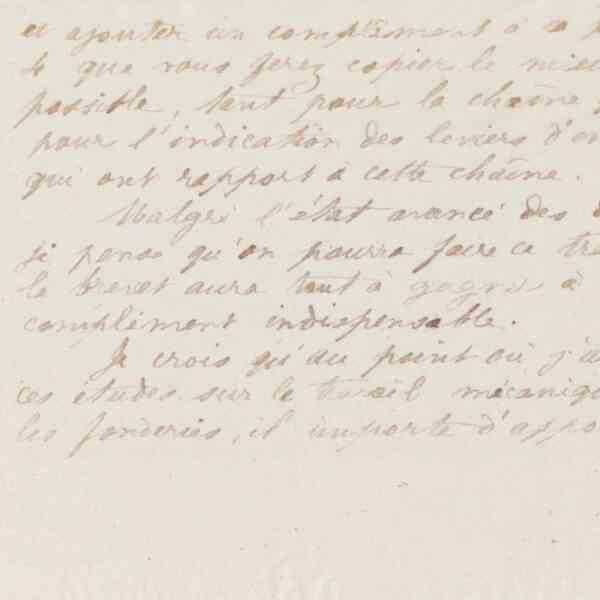 et ajouter un complément à
que vous ferez copier le mieux
possible, tant pour la chaîne
pour l'indication des leviers
qui ont rapport à cette chaîne.
Malgré l'état avancé des
je pense qu'on pourra faire ce
le brevet aura tout à gagner à
complément indispensable.
Je crois qu'au point où j'ai
ces études sur le travail mécanique
les fonderies, il importe